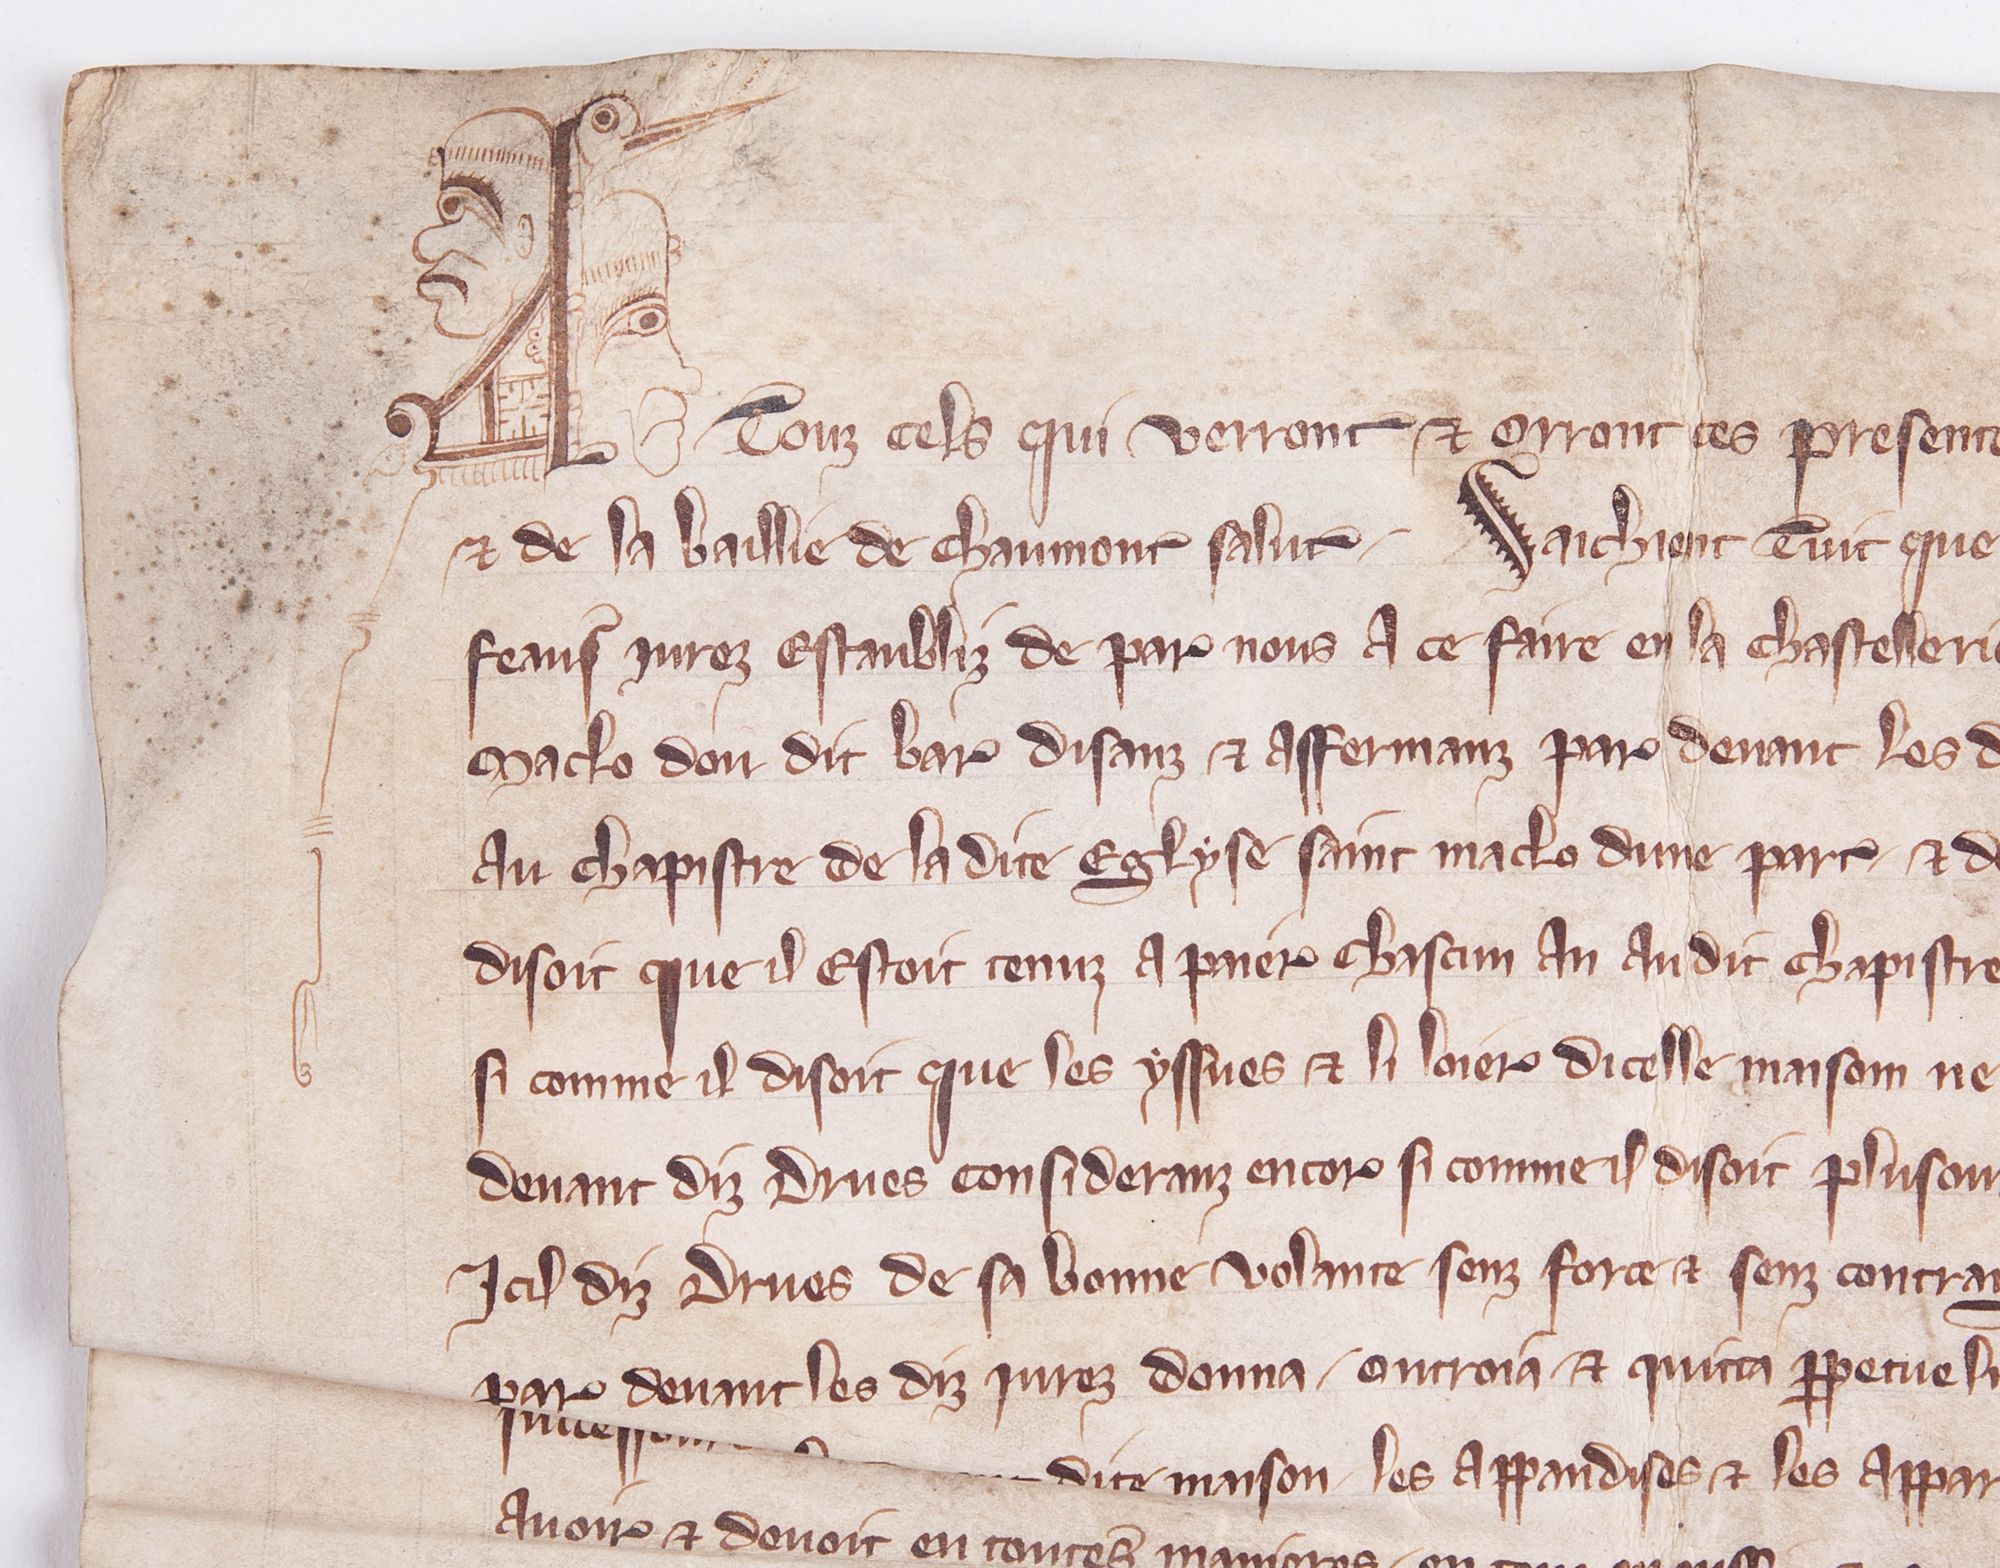 A Touz cels qui verront & orront ces presente
& de la baillie de Chaumont salut. Saichient Tuit que
feaus jurez Establiz de par nous A ce faire en la Chastellerie
Maclo dou dit bar disanz & Affermanz par devant les d
Au Chapistre de la dite Eglyse saint maclo dune part & de
disoit que il Estoit tenuz A paier Chascun An Au dit Chapistre
si comme il disoit que les yssues & li loier dicelle maison ne
devant diz Drues consideranz encor si comme il disoit plusour
Icil diz Drues de sa bonne volante senz force & senz contrai
par devant les diz jurez donna / outroia & quitta perpetueli
dite maison les Appandises & les Appar
Avoir & devoit en toutes manieres